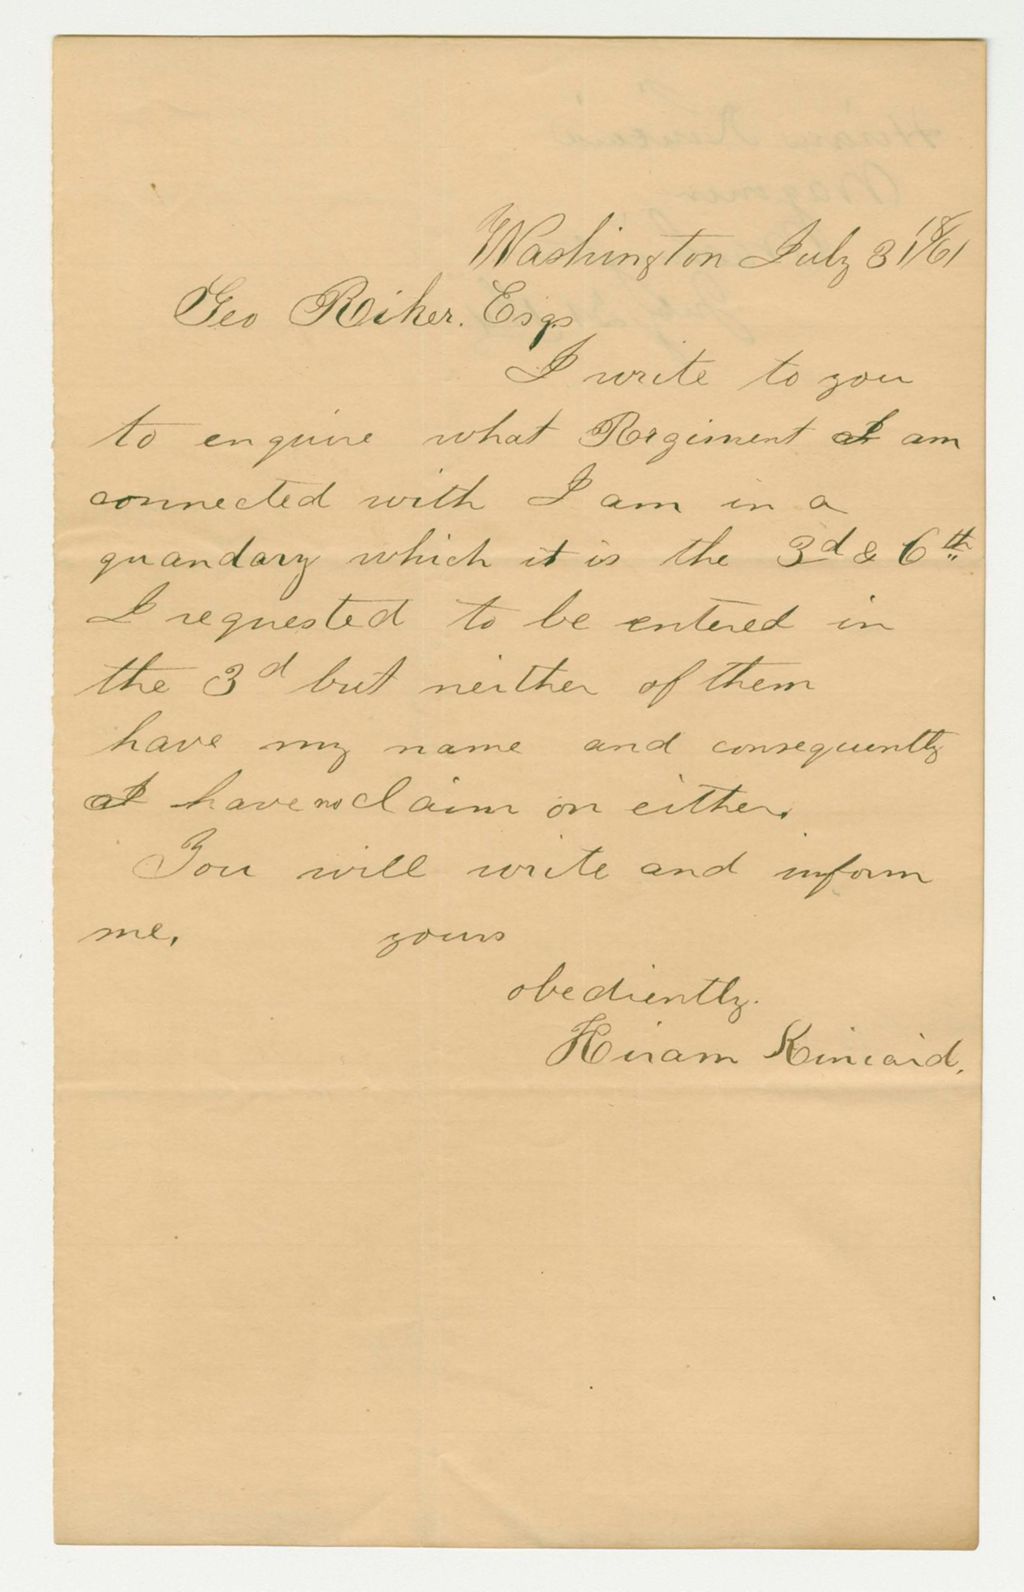 Washington July 31 1861
Geo Riker. Esqs
I write to you
to enquire what Regiment I am
connected with I am in a
quandary which it is the 3d & 6th
I requested to be entered in
the 3d but neither of them
have my name and consequently
I have no claim on either.
You will write and inform
me. yours
obediently.
Hiram Kincaid.